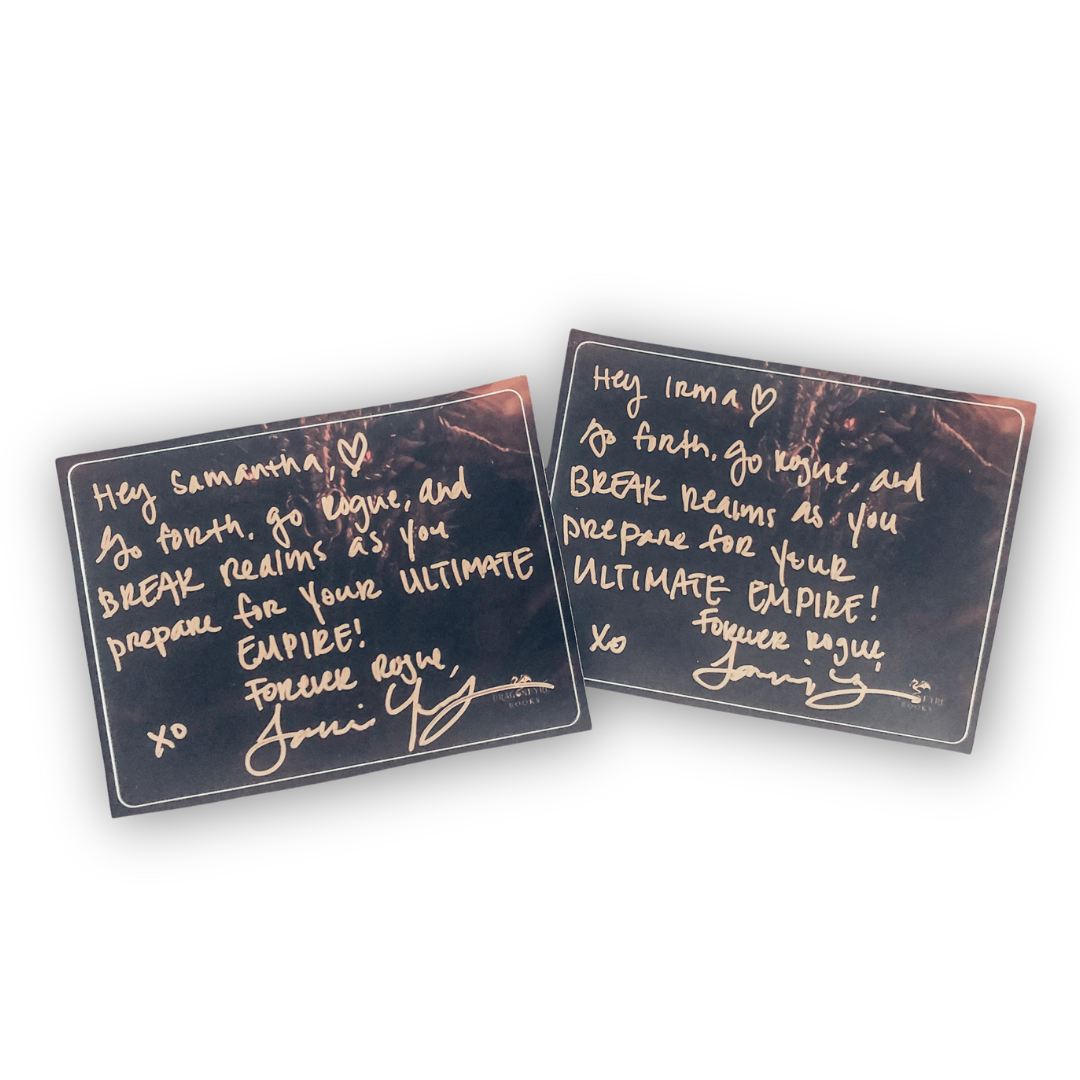 Hey Samantha, ♡
Go forth, go rogue, and
BREAK realms as you
prepare for your ULTIMATE
EMPIRE!
Forever Rogue,
xo
DRAGONFYRE
BOOKS
Hey Irma ♡
Go forth, go rogue, and
BREAK realms as you
prepare for your
ULTIMATE EMPIRE!
Forever rogue,
xo
BOOKS